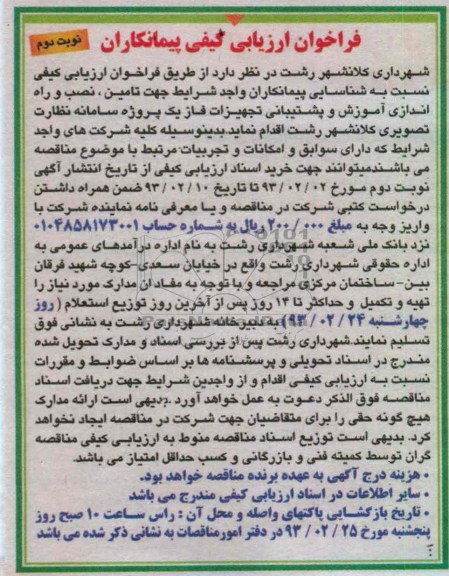 فراخوان ارزیابی کیفی پیمانکاران
نوبت دوم
شهرداری کلانشهر رشت در نظر دارد از طریق فراخوان ارزیابی کیفی
نسبت به شناسایی پیمانکاران واجد شرایط جهت تامین ، نصب و راه
اندازی آموزش و پشتیبانی تجهیزات فاز یک پروژه سامانه نظارت
تصویری کلانشهر رشت اقدام نماید.بدینوسیله کلیه شرکت های واجد
شرایط که دارای سوابق و امکانات و تجربیات مرتبط با موضوع مناقصه
می باشندمیتوانند جهت خرید اسناد ارزیابی کیفی از تاریخ انتشار آگهی
نوبت دوم مورخ ۹۳/۰۲/۰۲ تا تاریخ ۹۳/۰۲/۱۰ ضمن همراه داشتن
درخواست کتبی شرکت در مناقصه و یا معرفی نامه نماینده شرکت با
واریز وجه به مبلغ ۲۰۰/۰۰۰ ریال به شماره حساب ۰۱۰۴۸۵۸۱۷۳۰۰۱
نزد بانک ملی شعبه شهرداری رشت به نام اداره درآمدهای عمومی به
اداره حقوقی شهرداری رشت واقع در خیابان سعدی-کوچه شهید فرقان
بین- ساختمان مرکزی مراجعه و با توجه به مفاد آن مدارک مورد نیاز را
تهیه و تکمیل و حداکثر تا ۱۴ روز پس از آخرین روز توزیع استعلام ( روز
چهارشنبه ۹۳/۰۲/۲۴) به دبیرخانه شهرداری رشت به نشانی فوق
تسلیم نمایند.شهرداری رشت پس از بررسی اسناد و مدارک تحویل شده
مندرج در اسناد تحویلی و پرسشنامه ها بر اساس ضوابط و مقررات
نسبت به ارزیابی کیفی اقدام و از واجدین شرایط جهت دریافت اسناد
مناقصه فوق الذکر دعوت به عمل خواهد آورد .بدیهی است ارائه مدارک
هیچ گونه حقی را برای متقاضیان جهت شرکت در مناقصه ایجاد نخواهد
کرد. بدیهی است توزیع اسناد مناقصه منوط به ارزیابی کیفی مناقصه
گران توسط کمیته فنی و بازرگانی و کسب حداقل امتیاز می باشد.
• هزینه درج آگهی به عهده برنده مناقصه خواهد بود.
• سایر اطلاعات در اسناد ارزیابی کیفی مندرج می باشد
• تاریخ بازگشایی پاکتهای واصله و محل آن : راس ساعت ۱۰ صبح روز
پنجشنبه مورخ ۹۳/۰۲/۲۵ در دفتر امورمناقصات به نشانی ذکر شده می باشد